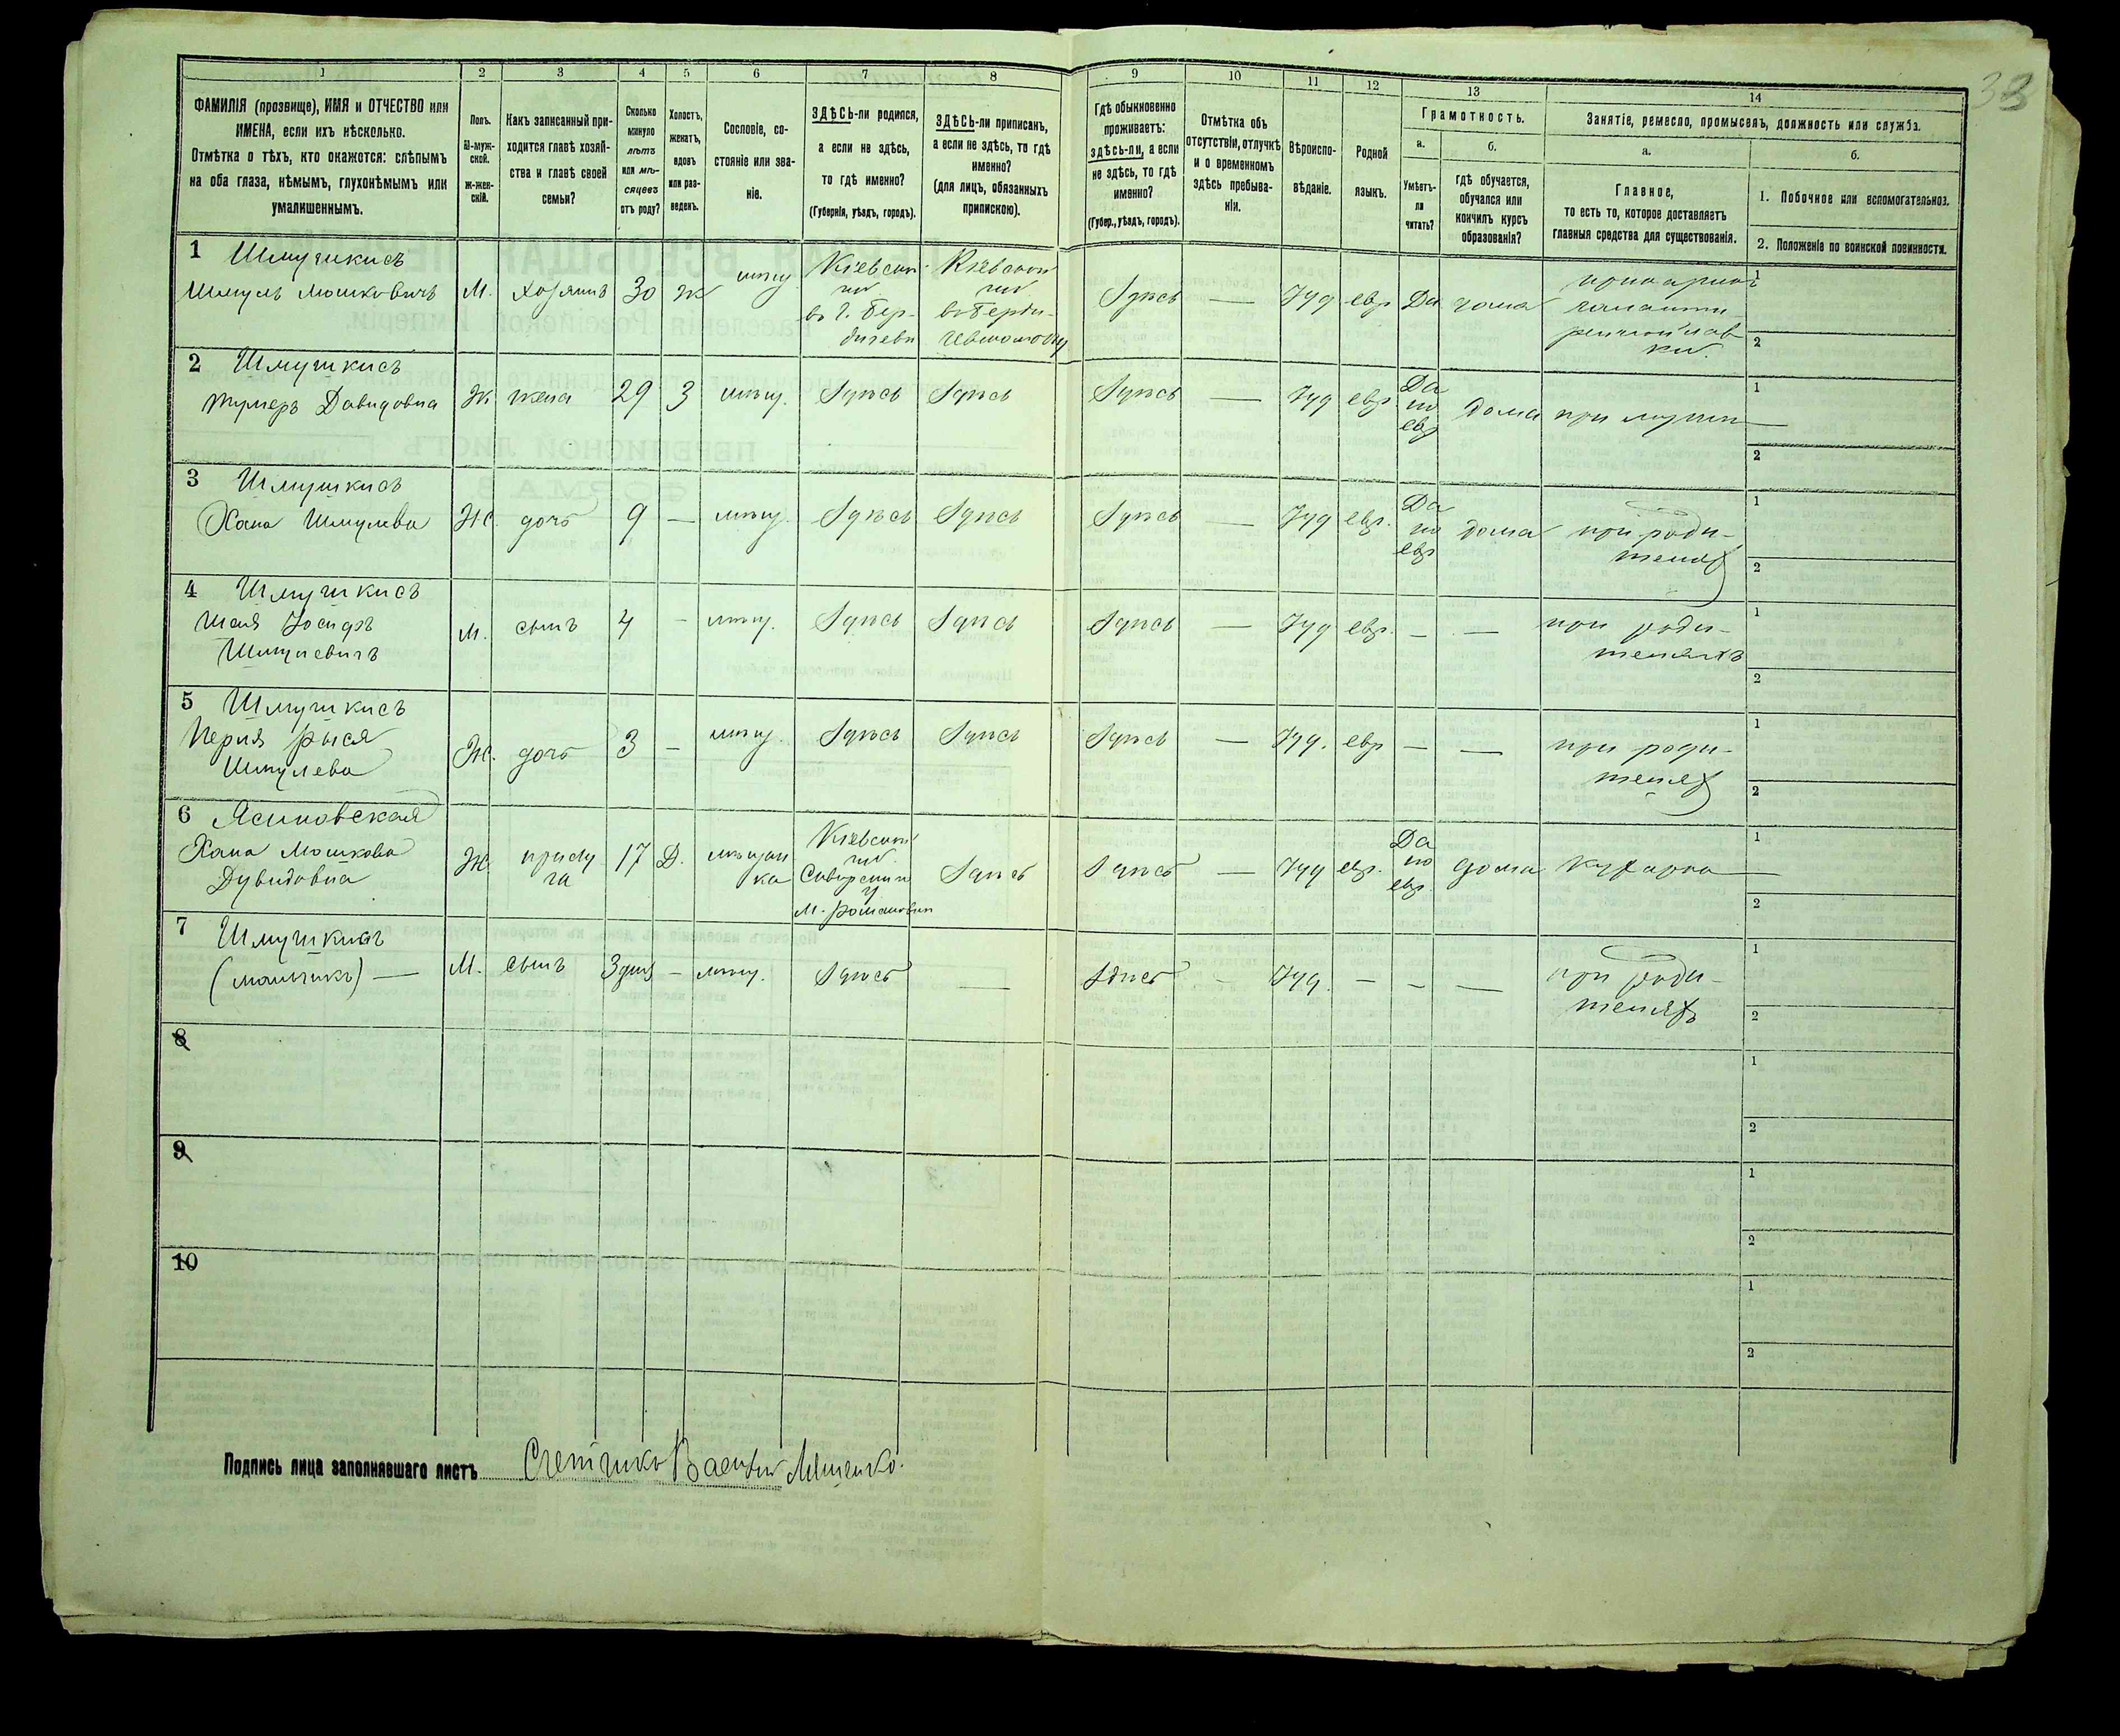 33
1
2
3
4
5
6
7
8
9
10
11
12
13
14
ФАМИЛІЯ (прозвище), ИМЯ и ОТЧЕСТВО или
ИМЕНА, если ихъ нѣсколько.
Отмѣтка о тѣхъ, кто окажется: слѣпымъ
на оба глаза, нѣмымъ, глухонѣмымъ или
умалишеннымъ.
Полъ.
М-муж-
ской.
ж-жен-
скій.
Какъ записанный при-
ходится главѣ хозяй-
ства и главѣ своей
семьи?
Сколько
минуло
лѣтъ
или мѣ-
сяцевъ
отъ роду?
Холостъ,
женатъ,
вдовъ
или раз-
веденъ.
Сословіе, со-
стояніе или зва-
ніе.
ЗДѢСЬ-ли родился,
а если не здѣсь,
то гдѣ именно?
(Губернія, уѣздъ, городъ).
ЗДѢСЬ-ли приписанъ,
а если не здѣсь, то гдѣ
именно?
(для лицъ, обязанныхъ
припискою).
Гдѣ обыкновенно
проживаетъ:
здѣсь-ли, а если
не здѣсь, то гдѣ
именно?
(Губер., уѣздъ, городъ).
Отмѣтка объ
отсутствіи, отлучкѣ
и о временномъ
здѣсь пребыва-
ніи.
Вѣроиспо-
вѣданіе.
Родной
языкъ.
Грамотность.
а.
Умѣетъ-
ли
читать?
б.
гдѣ обучается,
обучался или
кончилъ курсъ
образованія?
Занятіе, ремесло, промыселъ, должность или служба.
а.
Главное,
то есть то, которое доставляетъ
главныя средства для существованія.
б.
1. Побочное или вспомогательное.
2. Положеніе по воинской повинности.
1 Шмушкисъ
Шмуль Мошковичъ
М.
хозяинъ
30
ж
мѣщ.
Кіевской
губ
въ г. Бер-
дичеви
Кіевской
губ
въ Берди-
Здѣсь
—
Іуд
евр
Да
дома
1
2
2 Шмушкисъ
Давидовна
Ж
жена
29
З
мѣщ.
Здѣсь
Здѣсь
Здѣсь
—
Іуд
евр
Да
по
евр
дома
при мужи
1
2
3 Шмушкисъ
Хана Шмулева
Ж.
дочь
9
—
мѣщ.
Здѣсь
Здѣсь
Здѣсь
—
Іуд
евр.
Да
по
евр
дома
при роди-
теляхъ
1
2
4 Шмушкисъ
Шая Іосифъ
Шмулевичъ
М.
сынъ
4
-
мѣщ.
Здѣсь
Здѣсь
Здѣсь
—
Іуд
евр.
—
—
при роди-
теляхъ
1
2
5 Шмушкисъ
Перля Рыся
Шмулева
Ж.
дочь
3
-
мѣщ.
Здѣсь
Здѣсь
Здѣсь
—
Іуд.
евр
—
—
при роди-
теляхъ
1
2
6 Ясиновская
Хана Мошкова
Дувидовна
Ж.
прислу
га
17
Д.
мѣщан
ка
Кіевской
губ.
у
м. Романовки
Здѣсь
Здѣсь
—
Іуд
евр.
Да
по
евр.
дома
кухарка
1
2
7 Шмушкисъ
(мальчикъ) —
М.
сынъ
3 дня
-
мѣщ.
Здѣсь
—
Здѣсь
-
Іуд.
-
-
—
при роди-
теляхъ
1
2
8
1
2
9
1
2
10
1
2
Подпись лица заполнявшаго листъ Счетчикъ